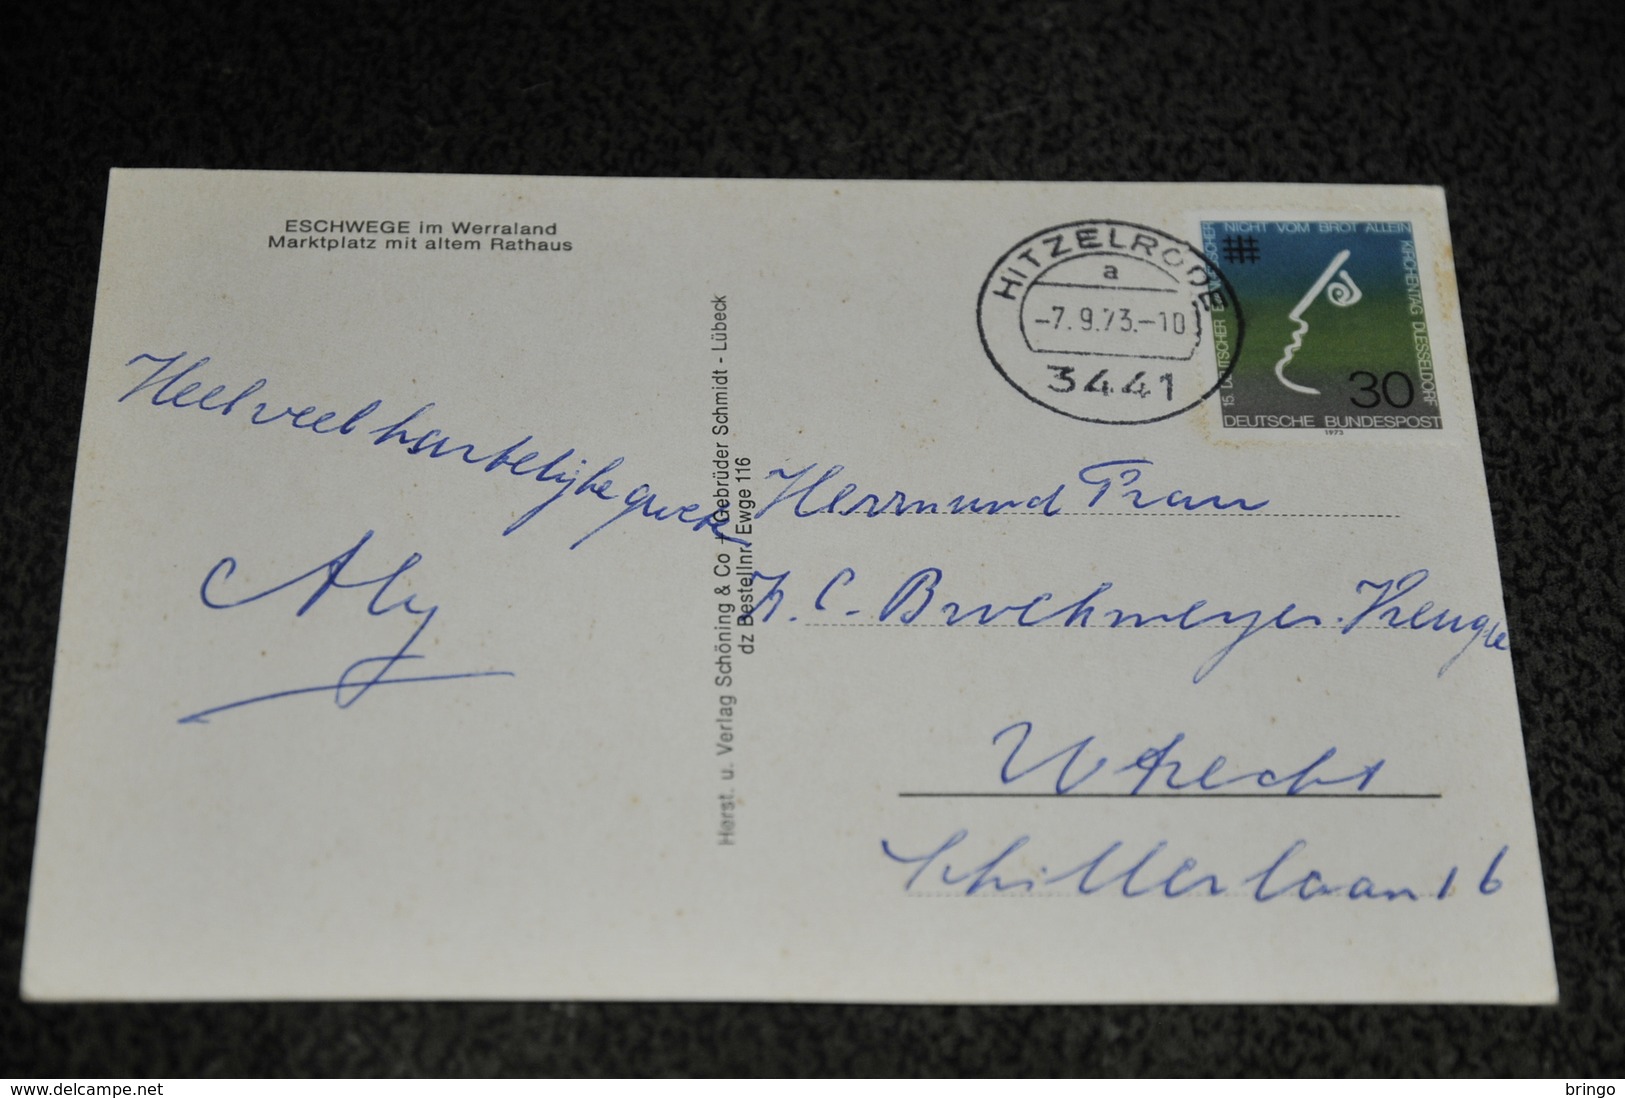 ESCHWEGE im Werraland
Marktplatz mit altem Rathaus
Heel veel hartelijke groet
Aly
Herst. u. Verlag Schöning & Co + Gebrüder Schmidt - Lübeck
dz Bestellnr. Ewge 116
HITZELRODE
a
-7.9.73.-10
3441
15. DEUTSCHER EVANGELISCHER
NICHT VOM BROT ALLEIN
KIRCHENTAG DUESSELDORF
30
DEUTSCHE BUNDESPOST
1973
Herrn und Frau
C. Brockmeyer.
Utrecht
Schillerlaan 16
delcampe.net
bringo